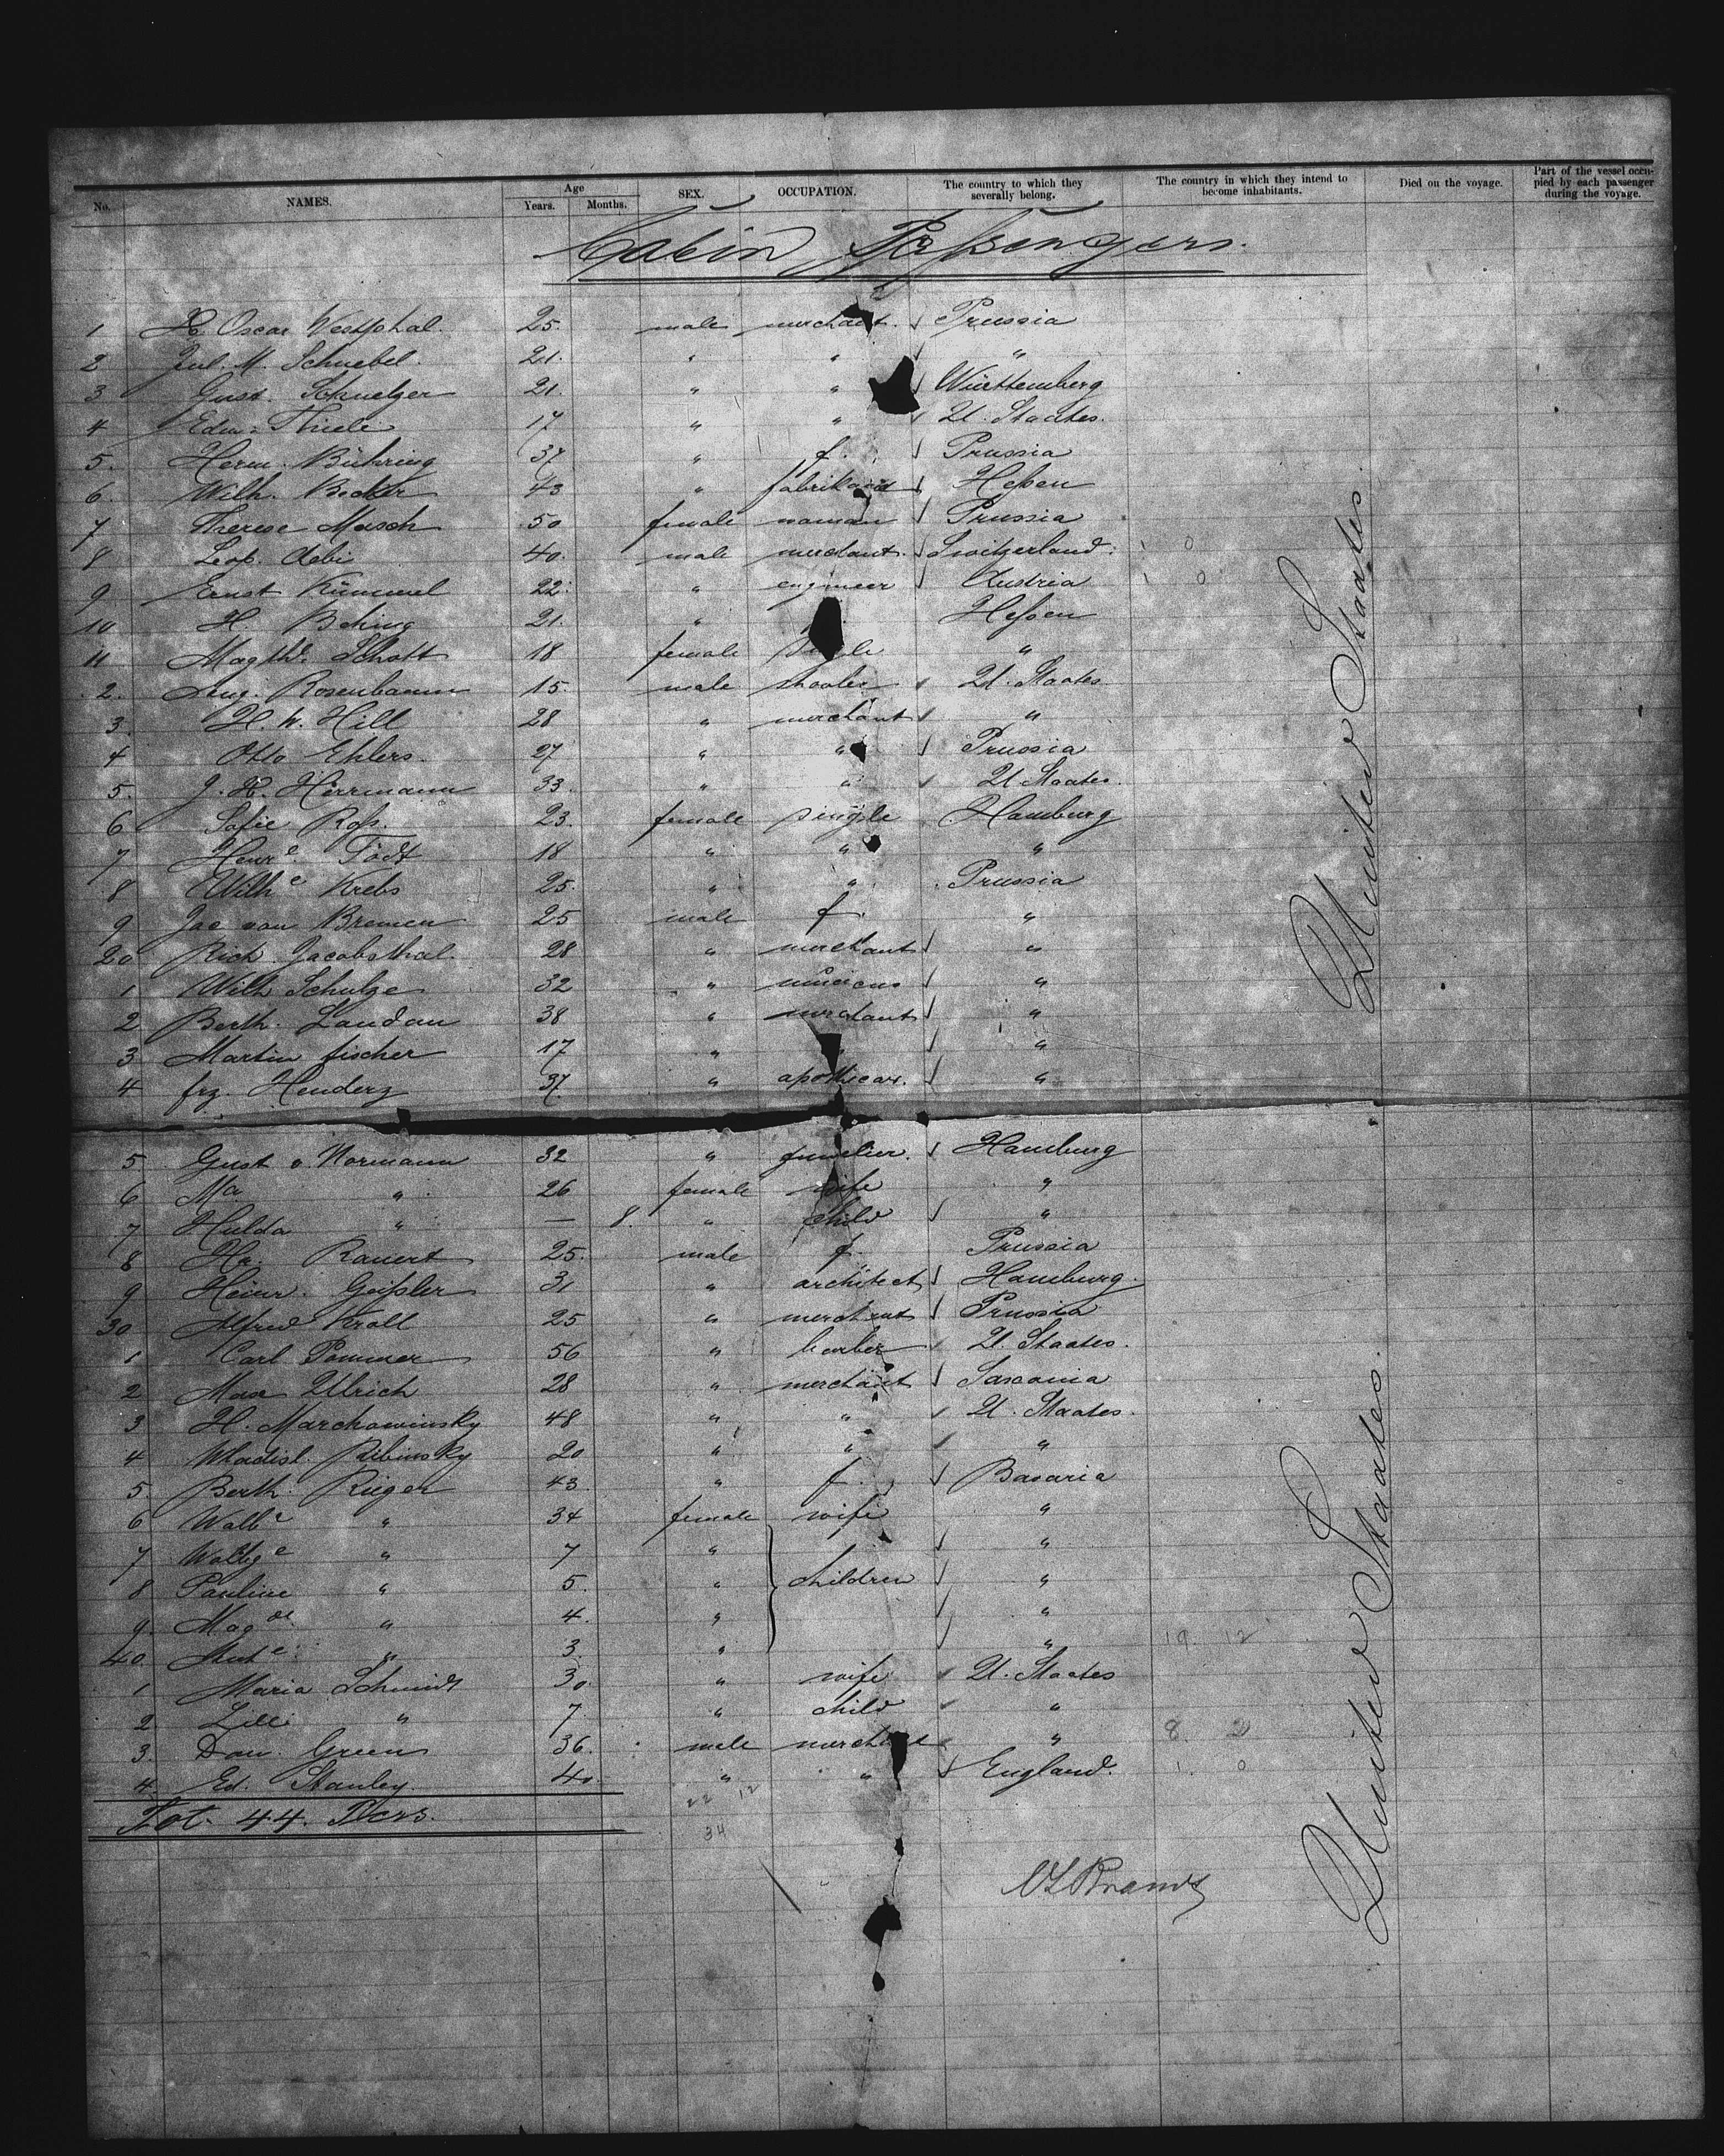 No. NAMES. Age Years. Months. SEX. OCCUPATION. The country to which they severally belong. The country in which they intend to become inhabitants. Died on the voyage. Part of the vessel occupied by each passenger during the voyage.
Cabin Passengers.
1 H. Oscar Westphal. 25. male merchant. Prussia
2 Jul. M. Schnebel. 21. " " "
3 Gust. Schmelzer 21. " " Württemberg
4 Edw: Thiele 17 " " U. Staates.
5. Herm. Bühring 37 " f. Prussia
6. Wilh. Becker 43 " fabrikant Hessen
7 Therese Masch 50 female woman Prussia
8 Leop. Aebi 40. male merchant. Switzerland. 1 0
9 Ernst Kümmel 22. " engineer Austria 1 0
10 H. 21. " Hessen
11 Magthe. Schott 18 female "
2. Aug. Rosenbaum 15. male U. Staates
3. H. W. Hill 28 " merchant "
4 Otto Ehlers. 27 " " Prussia
5. J. H. Herrmann 33. " " U Staates.
6 Sofie Ross. 23. female single Hamburg
7 Henre. Tödt 18 " " "
8 Wilhe Krebs 25. " " Prussia
9 Jac von Bremen 25 male f. "
20 Rich. Jacobsthal. 28 " merchant "
1 Wilh. Schulze 32 " "
2 Berth. Landau 38 " merchant "
3 Martin fischer 17 " "
4 frz. Henderz 37. " apothecar. "
5 Gust v. Normann 32 " juvelier. Hamburg
6 Ma " 26 female wife "
7 Hulda " — 8. " child "
8 Hr. Rauert 25. male f. Prussia
9 Heinr. Geissler 31 " architect Hamburg.
30 Alfred Kroll 25 " merchant Prussia
1 Carl Pommer 56 " barber U. Staates.
2 Max Ullrich 28 " merchant Saxonia
3 H. Marchowinsky 48 " " U. Staates.
4 Wladisl. Ribinsky 20 " " "
5 Berth. Rieger 43. " f. Bavaria
6 Walbe " 34 female wife "
7 " 7 " "
8 Pauline " 5. " children "
9. Magde " 4. " "
40. " 3. " " 19. 12
1 Maria Schmidt 30. " wife U. Staates
2. Lilli " 7 " child "
3. Dan. Green 36. male merchant " 8. 2
4. Ed. Stanley 40. " " England. 1. 0
22 12
Tot. 44. Pers.
34
Brandt
United Staates.
United Staates.